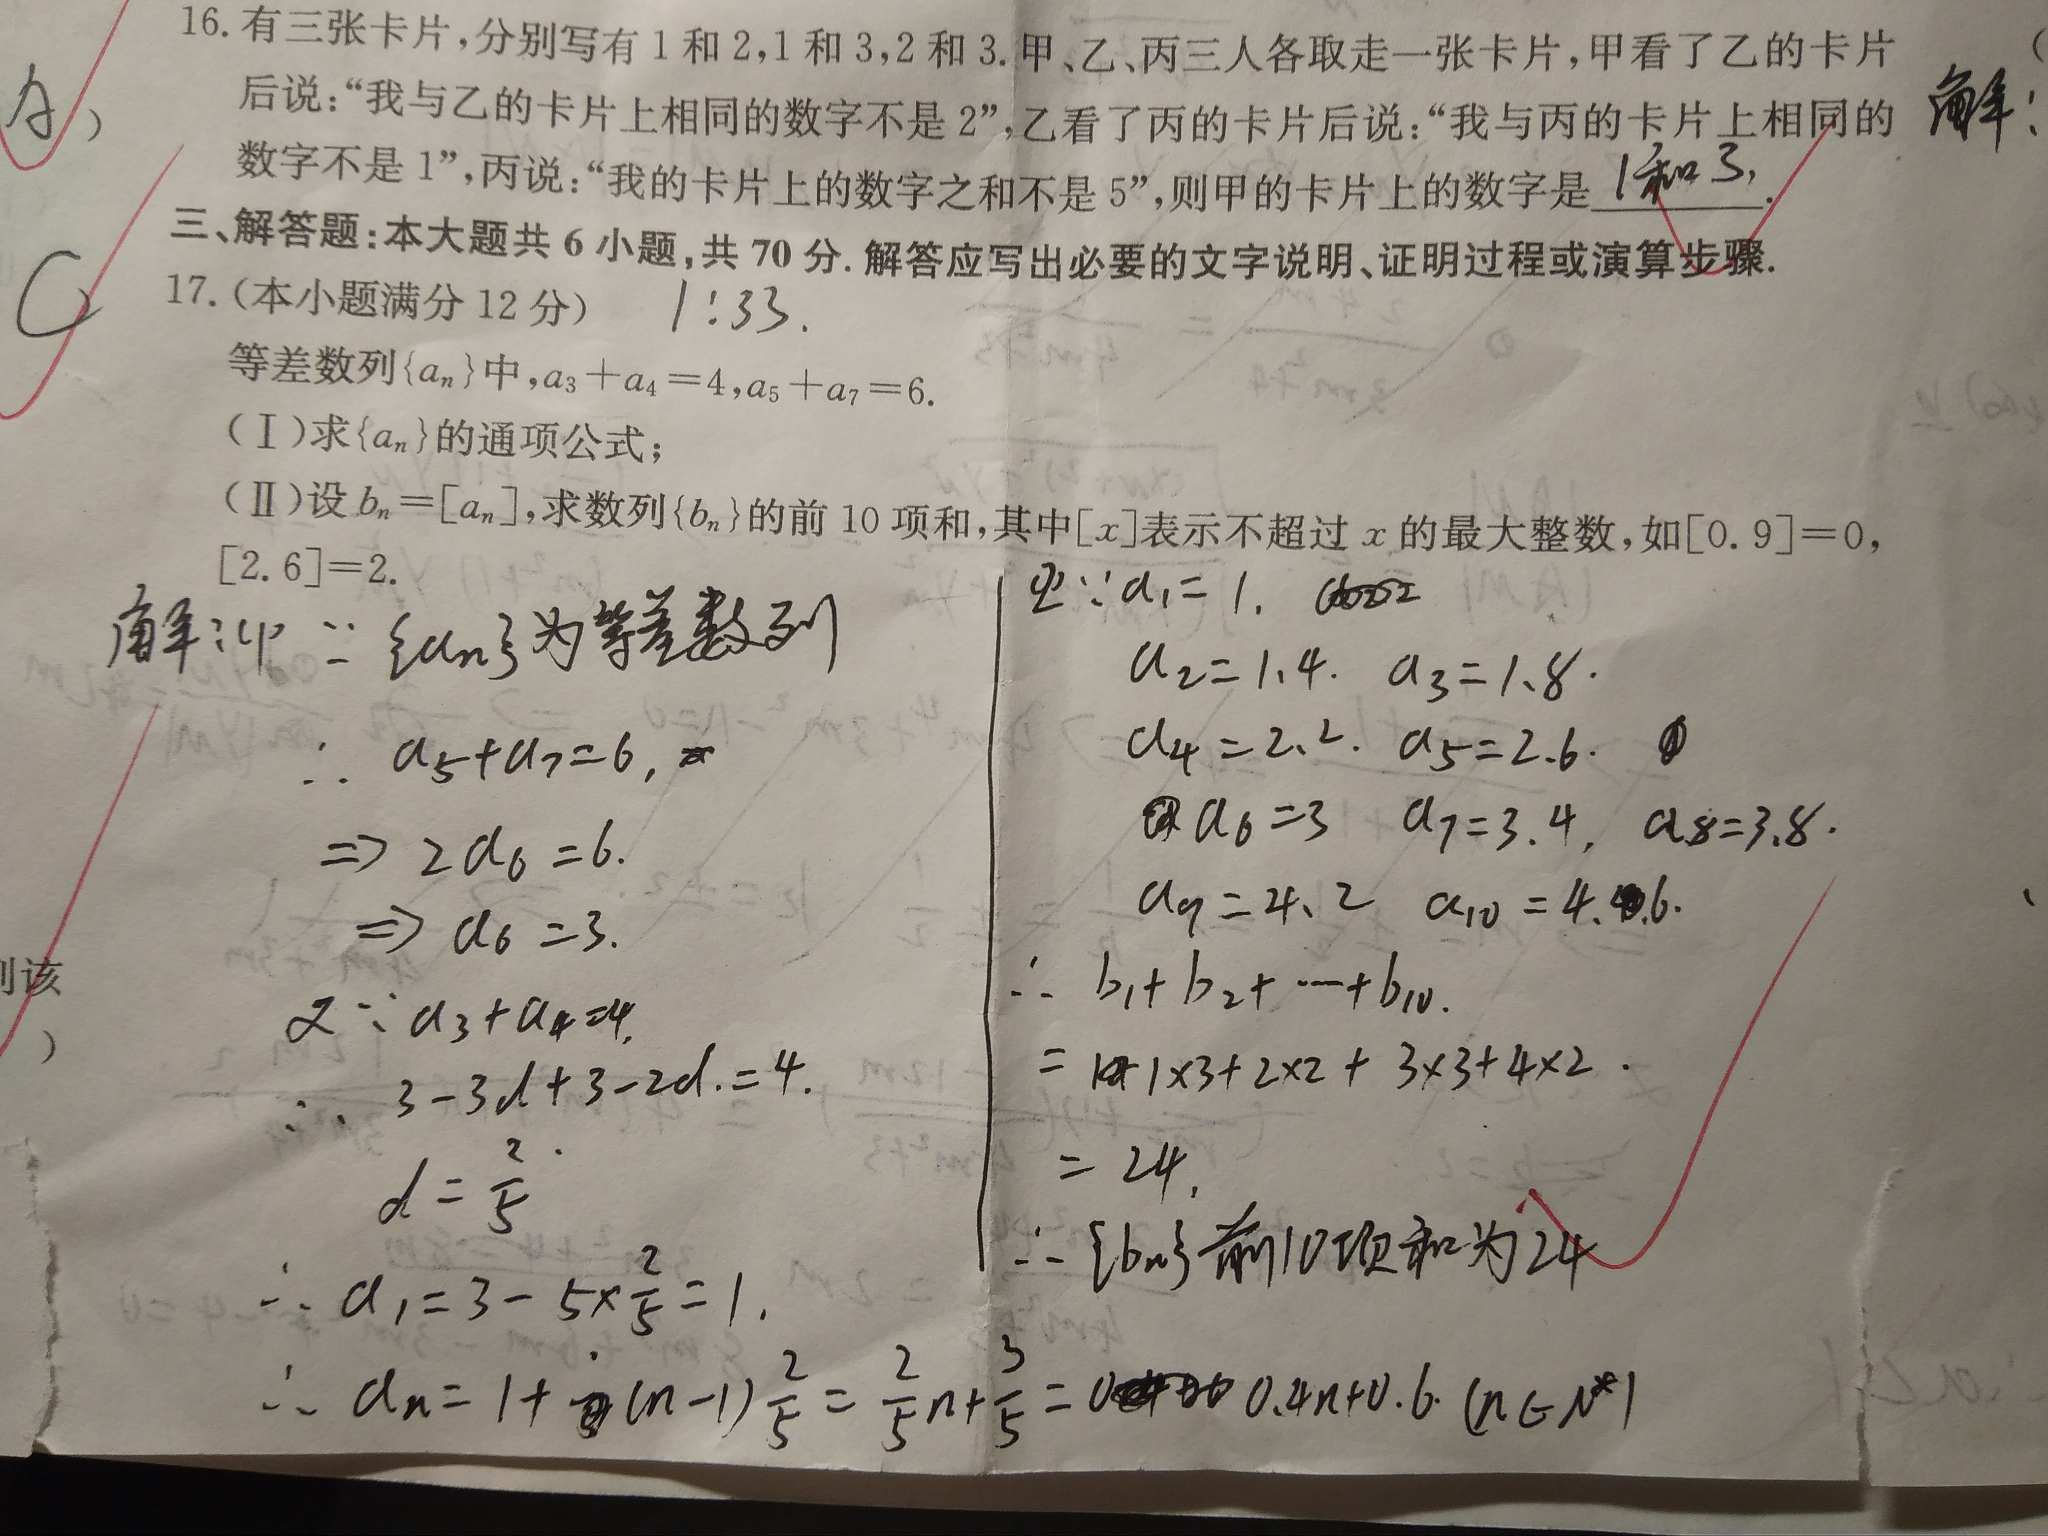 16. 有三张卡片,分别写有 1 和 2,1 和 3,2 和 3. 甲、乙、丙三人各取走一张卡片,甲看了乙的卡片
后说:“我与乙的卡片上相同的数字不是 2”,乙看了丙的卡片后说:“我与丙的卡片上相同的
数字不是 1”,丙说:“我的卡片上的数字之和不是 5”,则甲的卡片上的数字是 1和3.
三、解答题:本大题共 6 小题,共 70 分. 解答应写出必要的文字说明、证明过程或演算步骤.
17. (本小题满分 12 分) 1:33.
等差数列{aₙ}中,a₃+a₄=4,a₅+a₇=6.
(Ⅰ)求{aₙ}的通项公式;
(Ⅱ)设 bₙ=[aₙ],求数列{bₙ}的前 10 项和,其中[x]表示不超过 x 的最大整数,如[0.9]=0,
[2.6]=2.
解:(1) ∵ {aₙ}为等差数列
∴ a₅+a₇=6,
⇒ 2a₆=6.
⇒ a₆=3.
又∵ a₃+a₄=4,
∴ 3-3d+3-2d.=4.
d=2/5.
∴ a₁=3-5×2/5=1.
∴ aₙ=1+(n-1)2/5=2/5n+3/5=0.4n+0.6. (n∈N*)
∵ a₁=1.
a₂=1.4. a₃=1.8.
a₄=2.2. a₅=2.6.
a₆=3 a₇=3.4, a₈=3.8.
a₉=4.2 a₁₀=4.6.
∴ b₁+b₂+…+b₁₀.
=1×3+2×2+3×3+4×2.
=24.
∴ {bₙ}前10项和为24
解:
A
)
C
)
则该
)
(